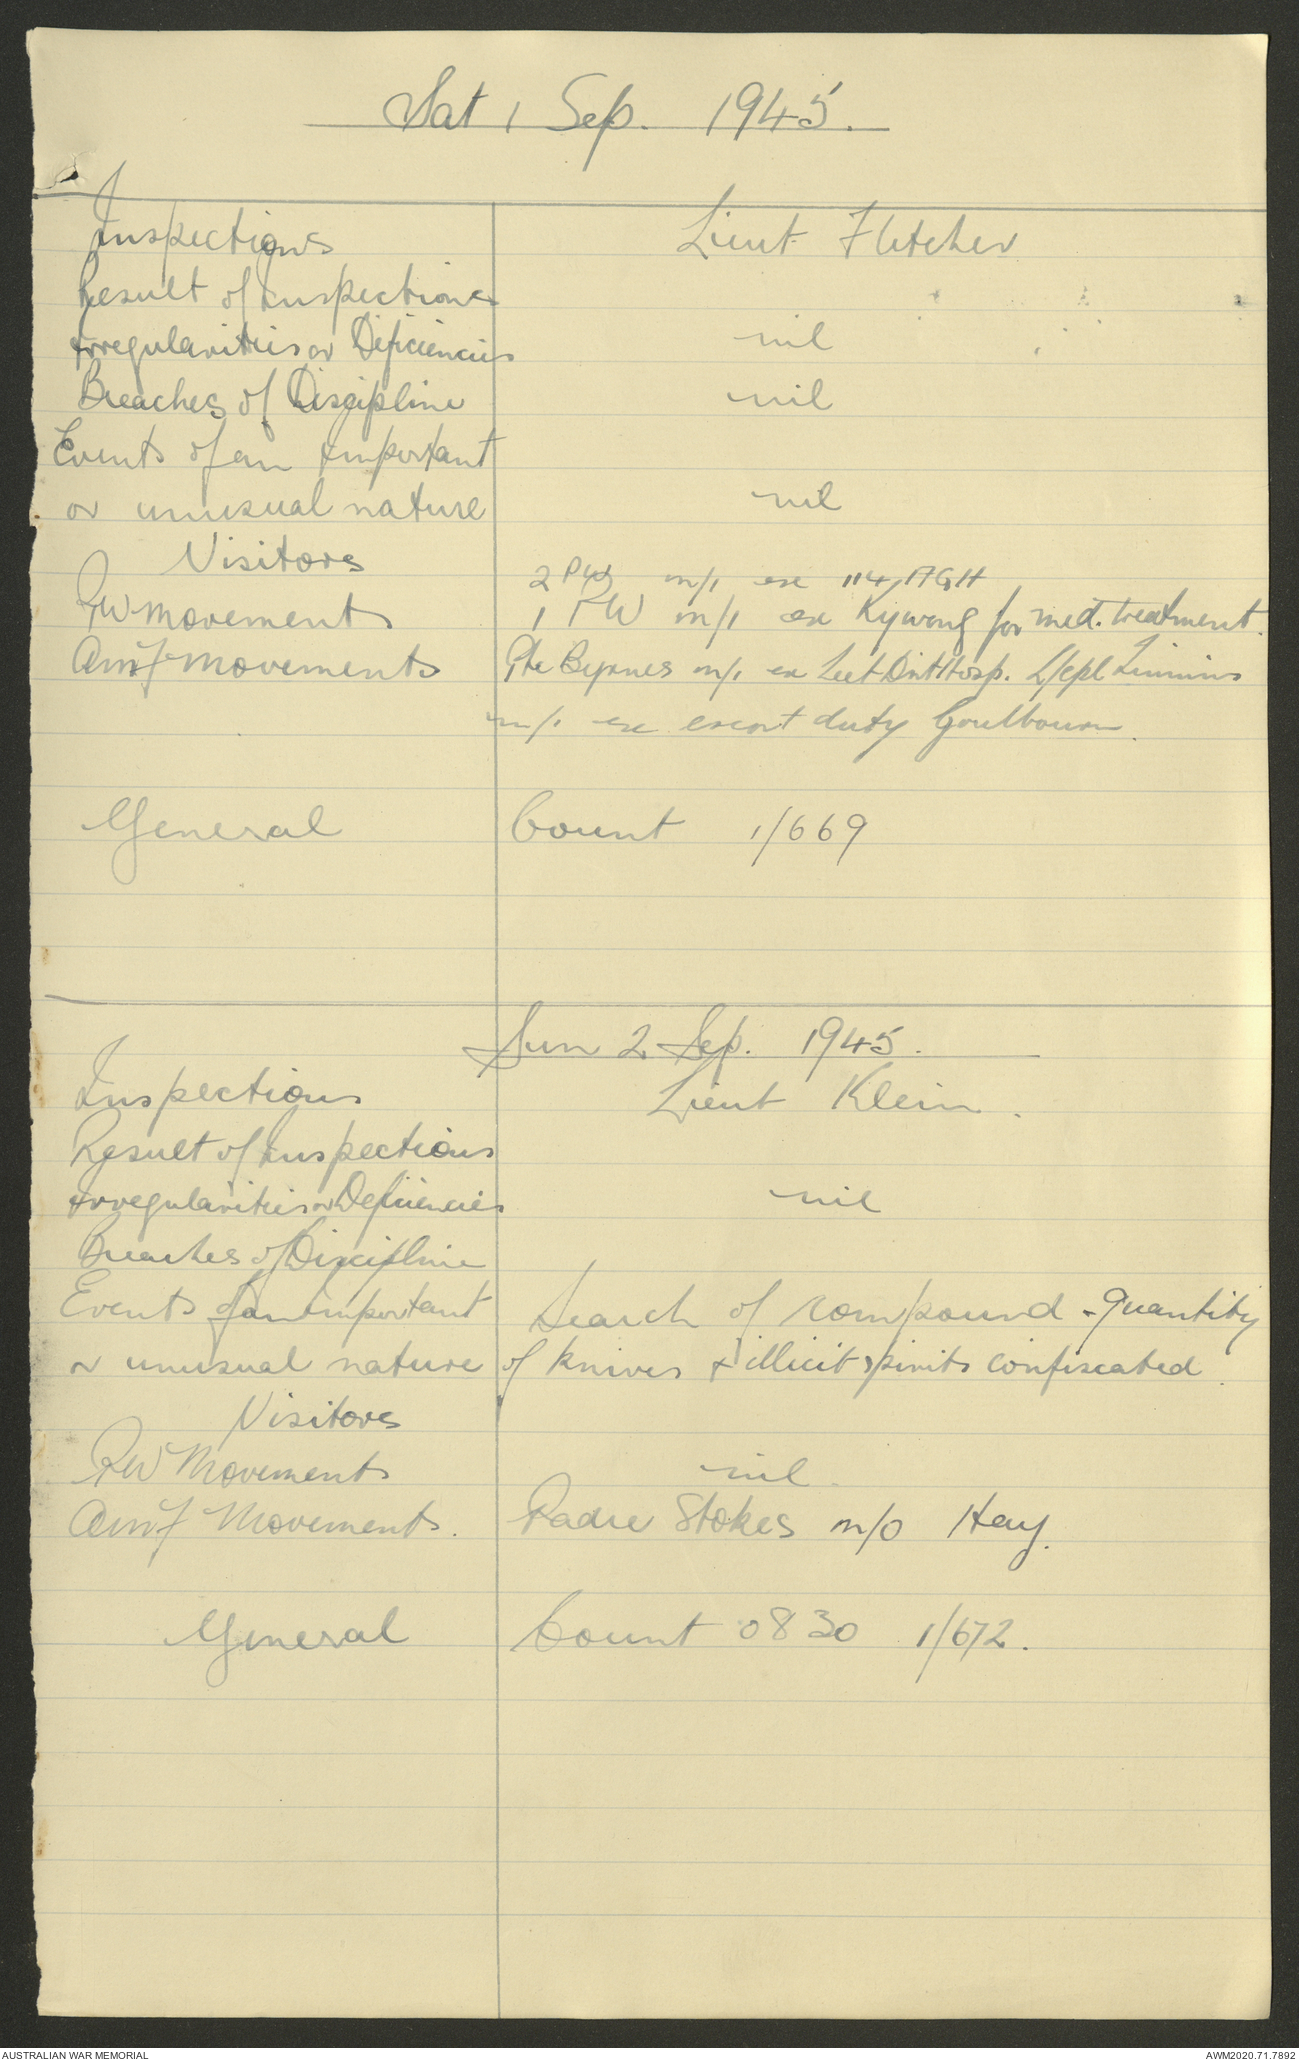 Sat 1 Sep. 1945.
Inspections Lieut Fletcher
Result of Inspections
Irregularities or Deficiencies nil
Breaches of Discipline nil
Events of an important
or unusual nature nil
Visitors
2 PWs m/i ex 114 AGH
PW movements 1 PW m/i ex Kywong for med. treatment.
Amf movements Pte Byrnes m/i ex Leet Dist Hosp. L/cpl
m/i ex escort duty Goulbourn.
General Count 1/669
Sun 2 Sep. 1945.
Inspections Lieut Klein.
Result of Inspections
Irregularities or Deficiencies nil
Breaches of Discipline
Events of an important Search of compound - quantity
or unusual nature of knives & illicit spirits confiscated.
Visitors
PW Movements nil.
Amf Movements. Padre Stokes m/o Hay.
General Count 0830 1/672.
AUSTRALIAN WAR MEMORIAL AWM2020.71.7892